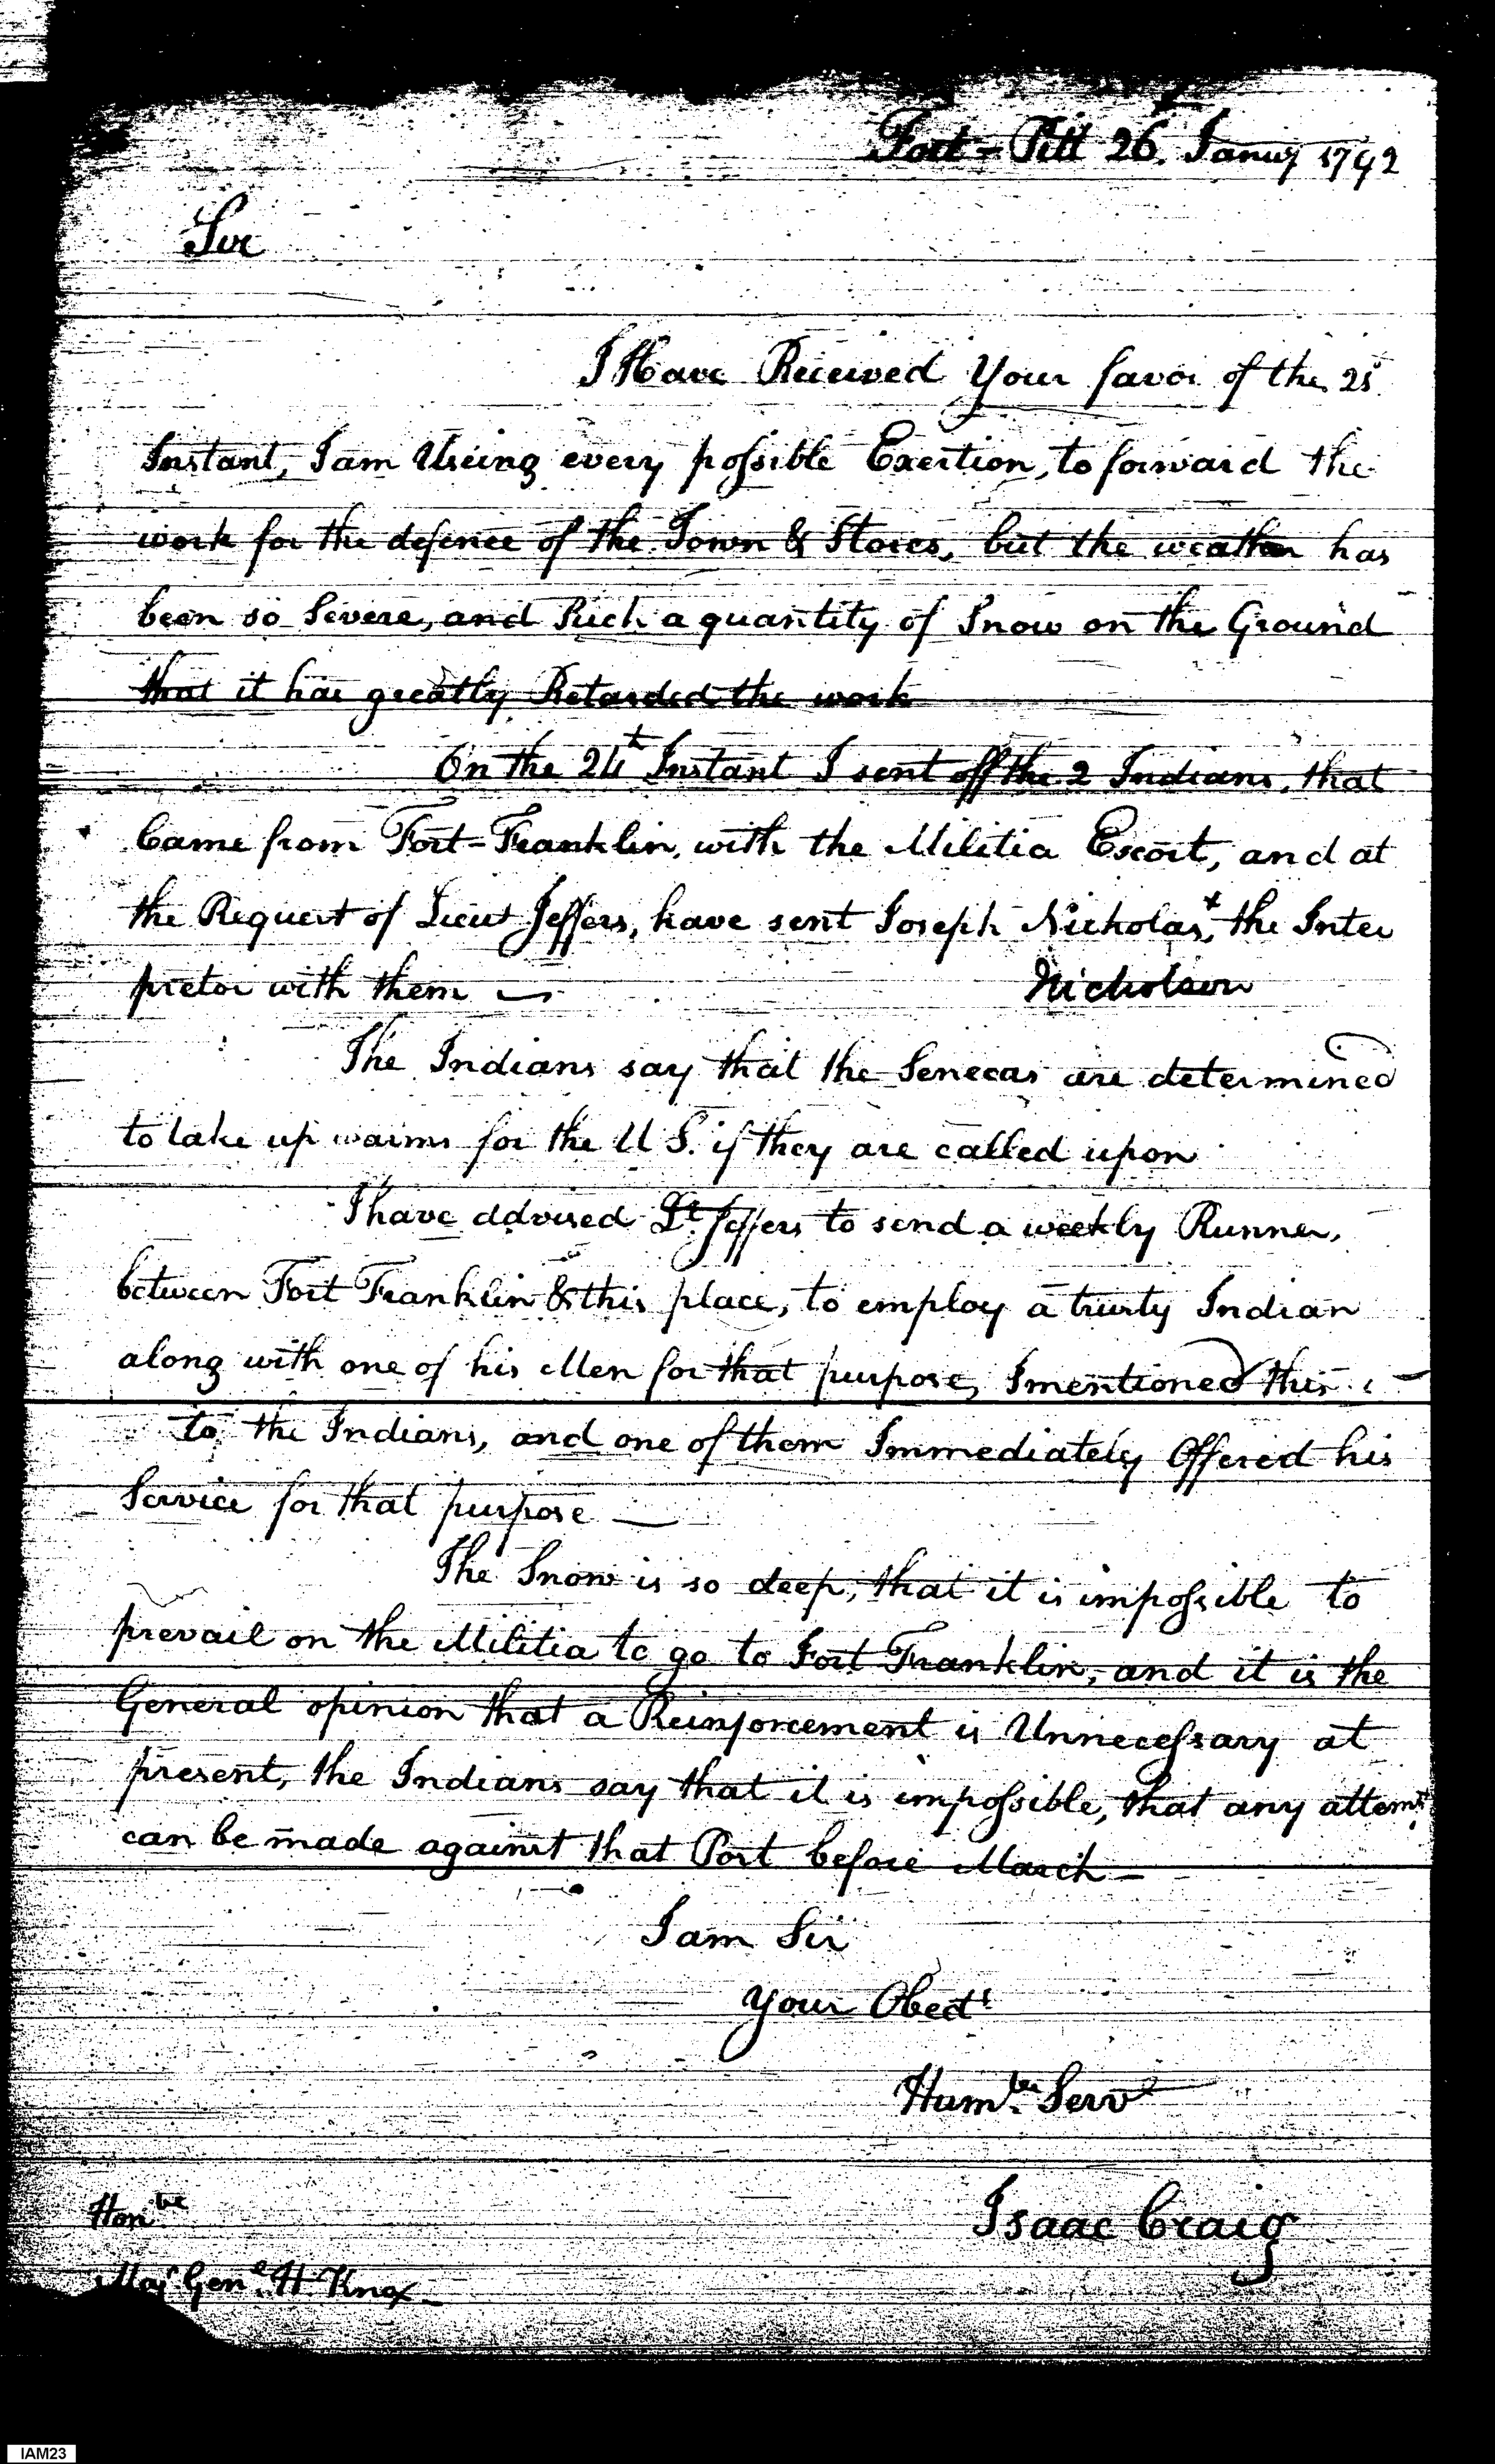 Fort-Pitt 26. Januy 1792
Sir
I Have Received Your favor of the 25
Instant, I am Useing every possible Exertion, to forward the
work for the defence of the Town & Stores, but the weather has
been so Severe, and Such a quantity of Snow on the Ground
that it has greatly Retarded the work
On the 24t Instant I sent off the 2 Indians, that
Came from Fort-Franklin, with the Militia Escort, and at
the Request of Lieut Jeffers, have sent Joseph Nicholas,+ the Inter
pretor with them — Nicholson
The Indians say that the Senecas are determined
to take up warms for the U S. if they are called upon
I have advised Lt. Jeffers to send a weekly Runner,
between Fort Franklin & this place, to employ a trusty Indian
along with one of his Men for that purpose, I mentioned this
to the Indians, and one of them Immediately Offered his
Service for that purpose —
The Snow is so deep, that it is impossible to
prevail on the Militia to go to Fort Franklin, and it is the
General opinion that a Reinforcement is Unnecessary at
present, the Indians say that it is impossible, that any attempt
can be made against that Post before March —
I am Sir
Your Obedt
Humble Servt
Isaac Craig
Honble
Maj Genl. H. Knox
IAM23